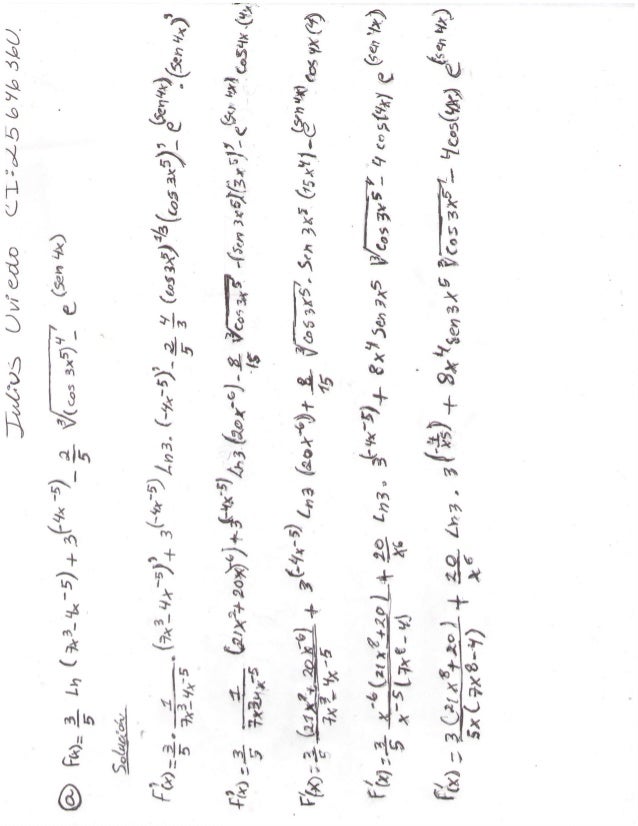 Julius Uviedo CI=25646360.
ⓐ f(x)= 3/5 Ln (7x³-4x^-5) + 3^(-4x^-5) - 2/5 ∛(cos 3x⁵)⁴ - e^(sen 4x)
Solución
f'(x)= 3/5 · 1/(7x³-4x^-5) · (7x³-4x^-5)' + 3^(-4x^-5) Ln3 · (-4x^-5)' - 2/5 4/3 (cos 3x⁵)^1/3 (cos 3x⁵)' - e^(sen 4x) · (sen 4x)'
f'(x)= 3/5 1/(7x³-4x^-5) (21x²+20x^-6) + 3^(-4x^-5) Ln3 (20x^-6) - 8/15 ∛cos 3x⁵ - (sen 3x⁵)(3x⁵)' - e^(sen 4x) cos4x · (4x)'
F'(x)= 3/5 (21x²+20x^-6)/(7x³-4x^-5) + 3^(-4x^-5) Ln3 (20x^-6) + 8/15 ∛cos 3x⁵ · Sen 3x⁵ (15x⁴) - e^(sen 4x) cos 4x (4)
F'(x)= 3/5 x^-6 (21x⁸+20)/x^-5 (7x⁸-4) + 20/x⁶ Ln3 · 3^(-4x^-5) + 8x⁴ Sen 3x⁵ ∛cos 3x⁵ - 4 cos(4x) e^(sen 4x)
F'(x)= 3(21x⁸+20)/5x(7x⁸-4) + 20/x⁶ Ln3 · 3^(-4/x⁵) + 8x⁴ sen 3x⁵ ∛cos 3x⁵ - 4cos(4x) e^(sen 4x)